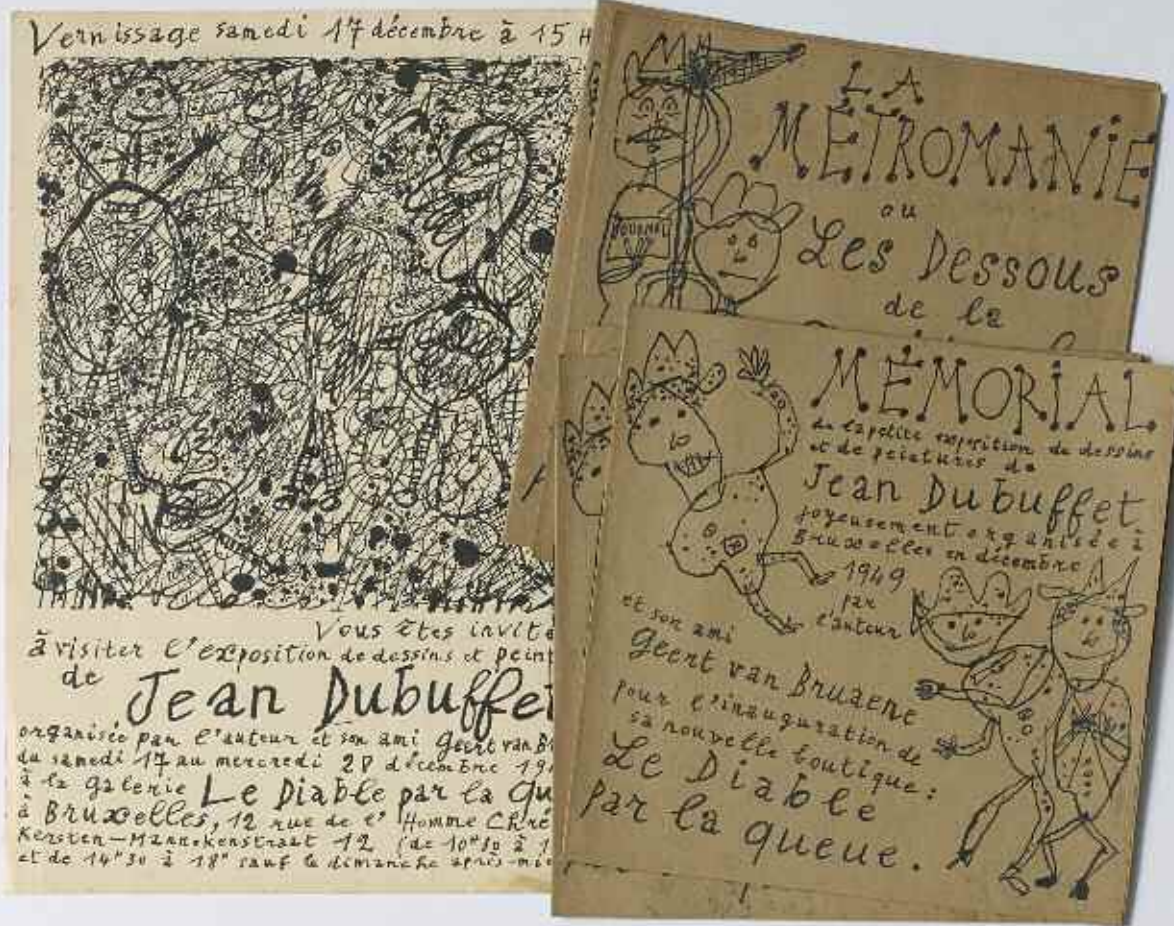 Vernissage samedi 17 décembre à 15 H
Vous êtes invité
à visiter l'exposition de dessins et peint
de Jean Dubuffet
organisée par l'auteur et son ami Geert van Br
du samedi 17 au mercredi 28 décembre 19
à la galerie Le Diable par la qu
à Bruxelles, 12 rue de l'Homme Chré
Kersten-Mannekenstraat 12 (de 10h30 à 1
et de 14h30 à 18h sauf le dimanche après-mi
LA
MÉTROMANIE
ou
Les Dessous
de la
JOURNAL
MÉMORIAL
de la petite exposition de dessins
et de peintures de
Jean Dubuffet
joyeusement organisée à
Bruxelles en décembre
1949
par
l'auteur
et son ami
Geert van Bruaene
pour l'inauguration de
sa nouvelle boutique:
Le Diable
par la queue.